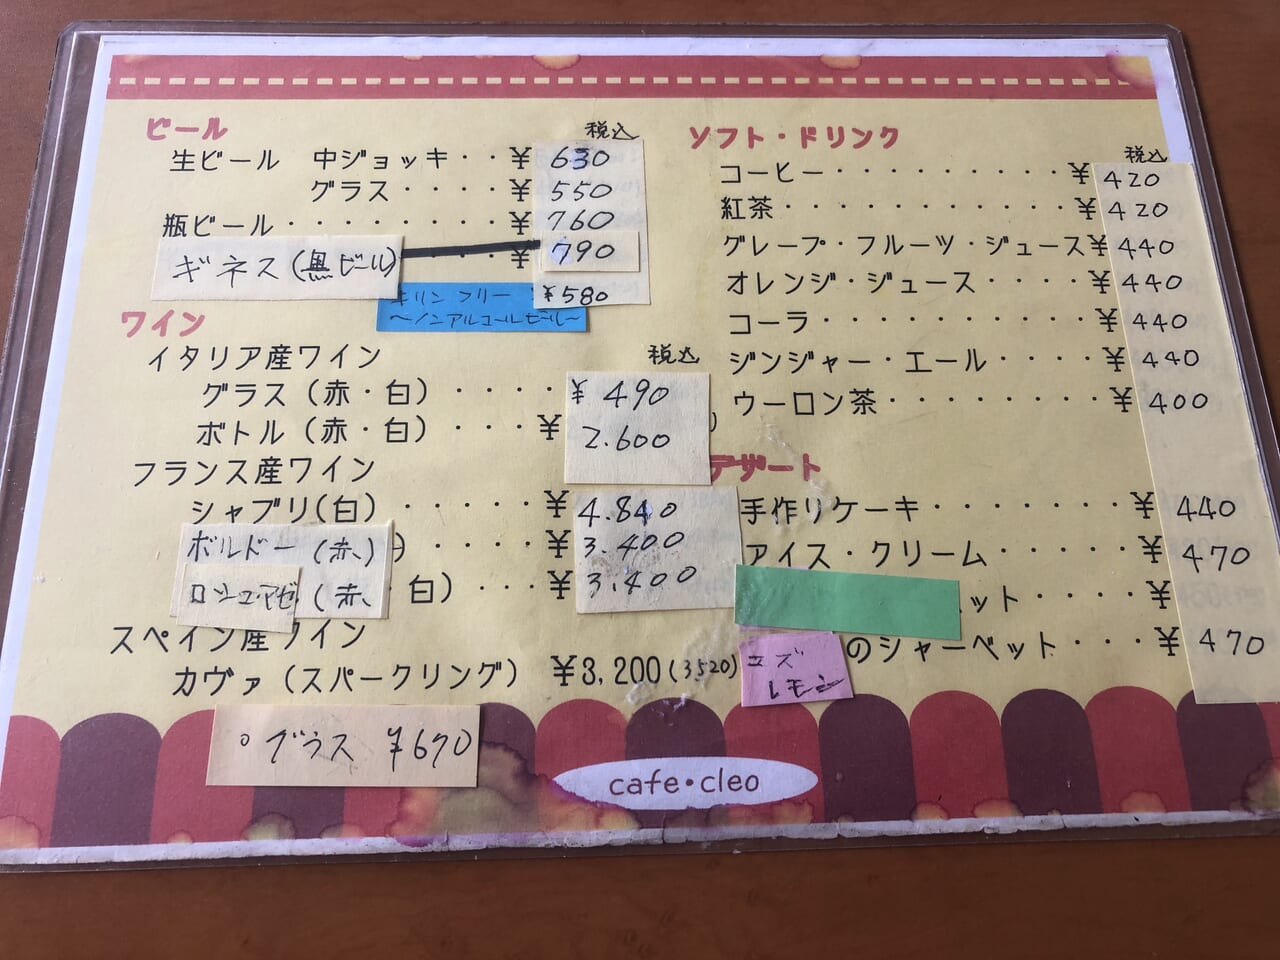 ビール 税込
生ビール 中ジョッキ・・¥ 630
グラス・・・・¥ 550
瓶ビール・・・・・・・・¥ 760
ギネス(黒ビール) ¥ 790
キリン フリー ¥580
〜ノンアルコールビール〜
ワイン
イタリア産ワイン 税込
グラス(赤・白)・・・・ ¥ 490
ボトル(赤・白)・・・¥ 2.600
フランス産ワイン
シャブリ(白)・・・・¥ 4.840
ボルドー(赤)・・・・¥ 3.400
ロシュ・アゼ(赤、白)・・・¥ 3.400
スペイン産ワイン
カヴァ(スパークリング) ¥3,200(3520)
。グラス ¥670
ソフト・ドリンク
税込
コーヒー・・・・・・・・・¥ 420
紅茶・・・・・・・・・・・¥ 420
グレープ・フルーツ・ジュース¥ 440
オレンジ・ジュース・・・・¥ 440
コーラ・・・・・・・・・・¥ 440
ジンジャー・エール・・・・¥ 440
ウーロン茶・・・・・・・・¥ 400
デザート
手作りケーキ・・・・・・・¥ 440
アイス・クリーム・・・・・¥ 470
ット・・・・¥
ユズ
レモン
のシャーベット・・・¥ 470
cafe・cleo